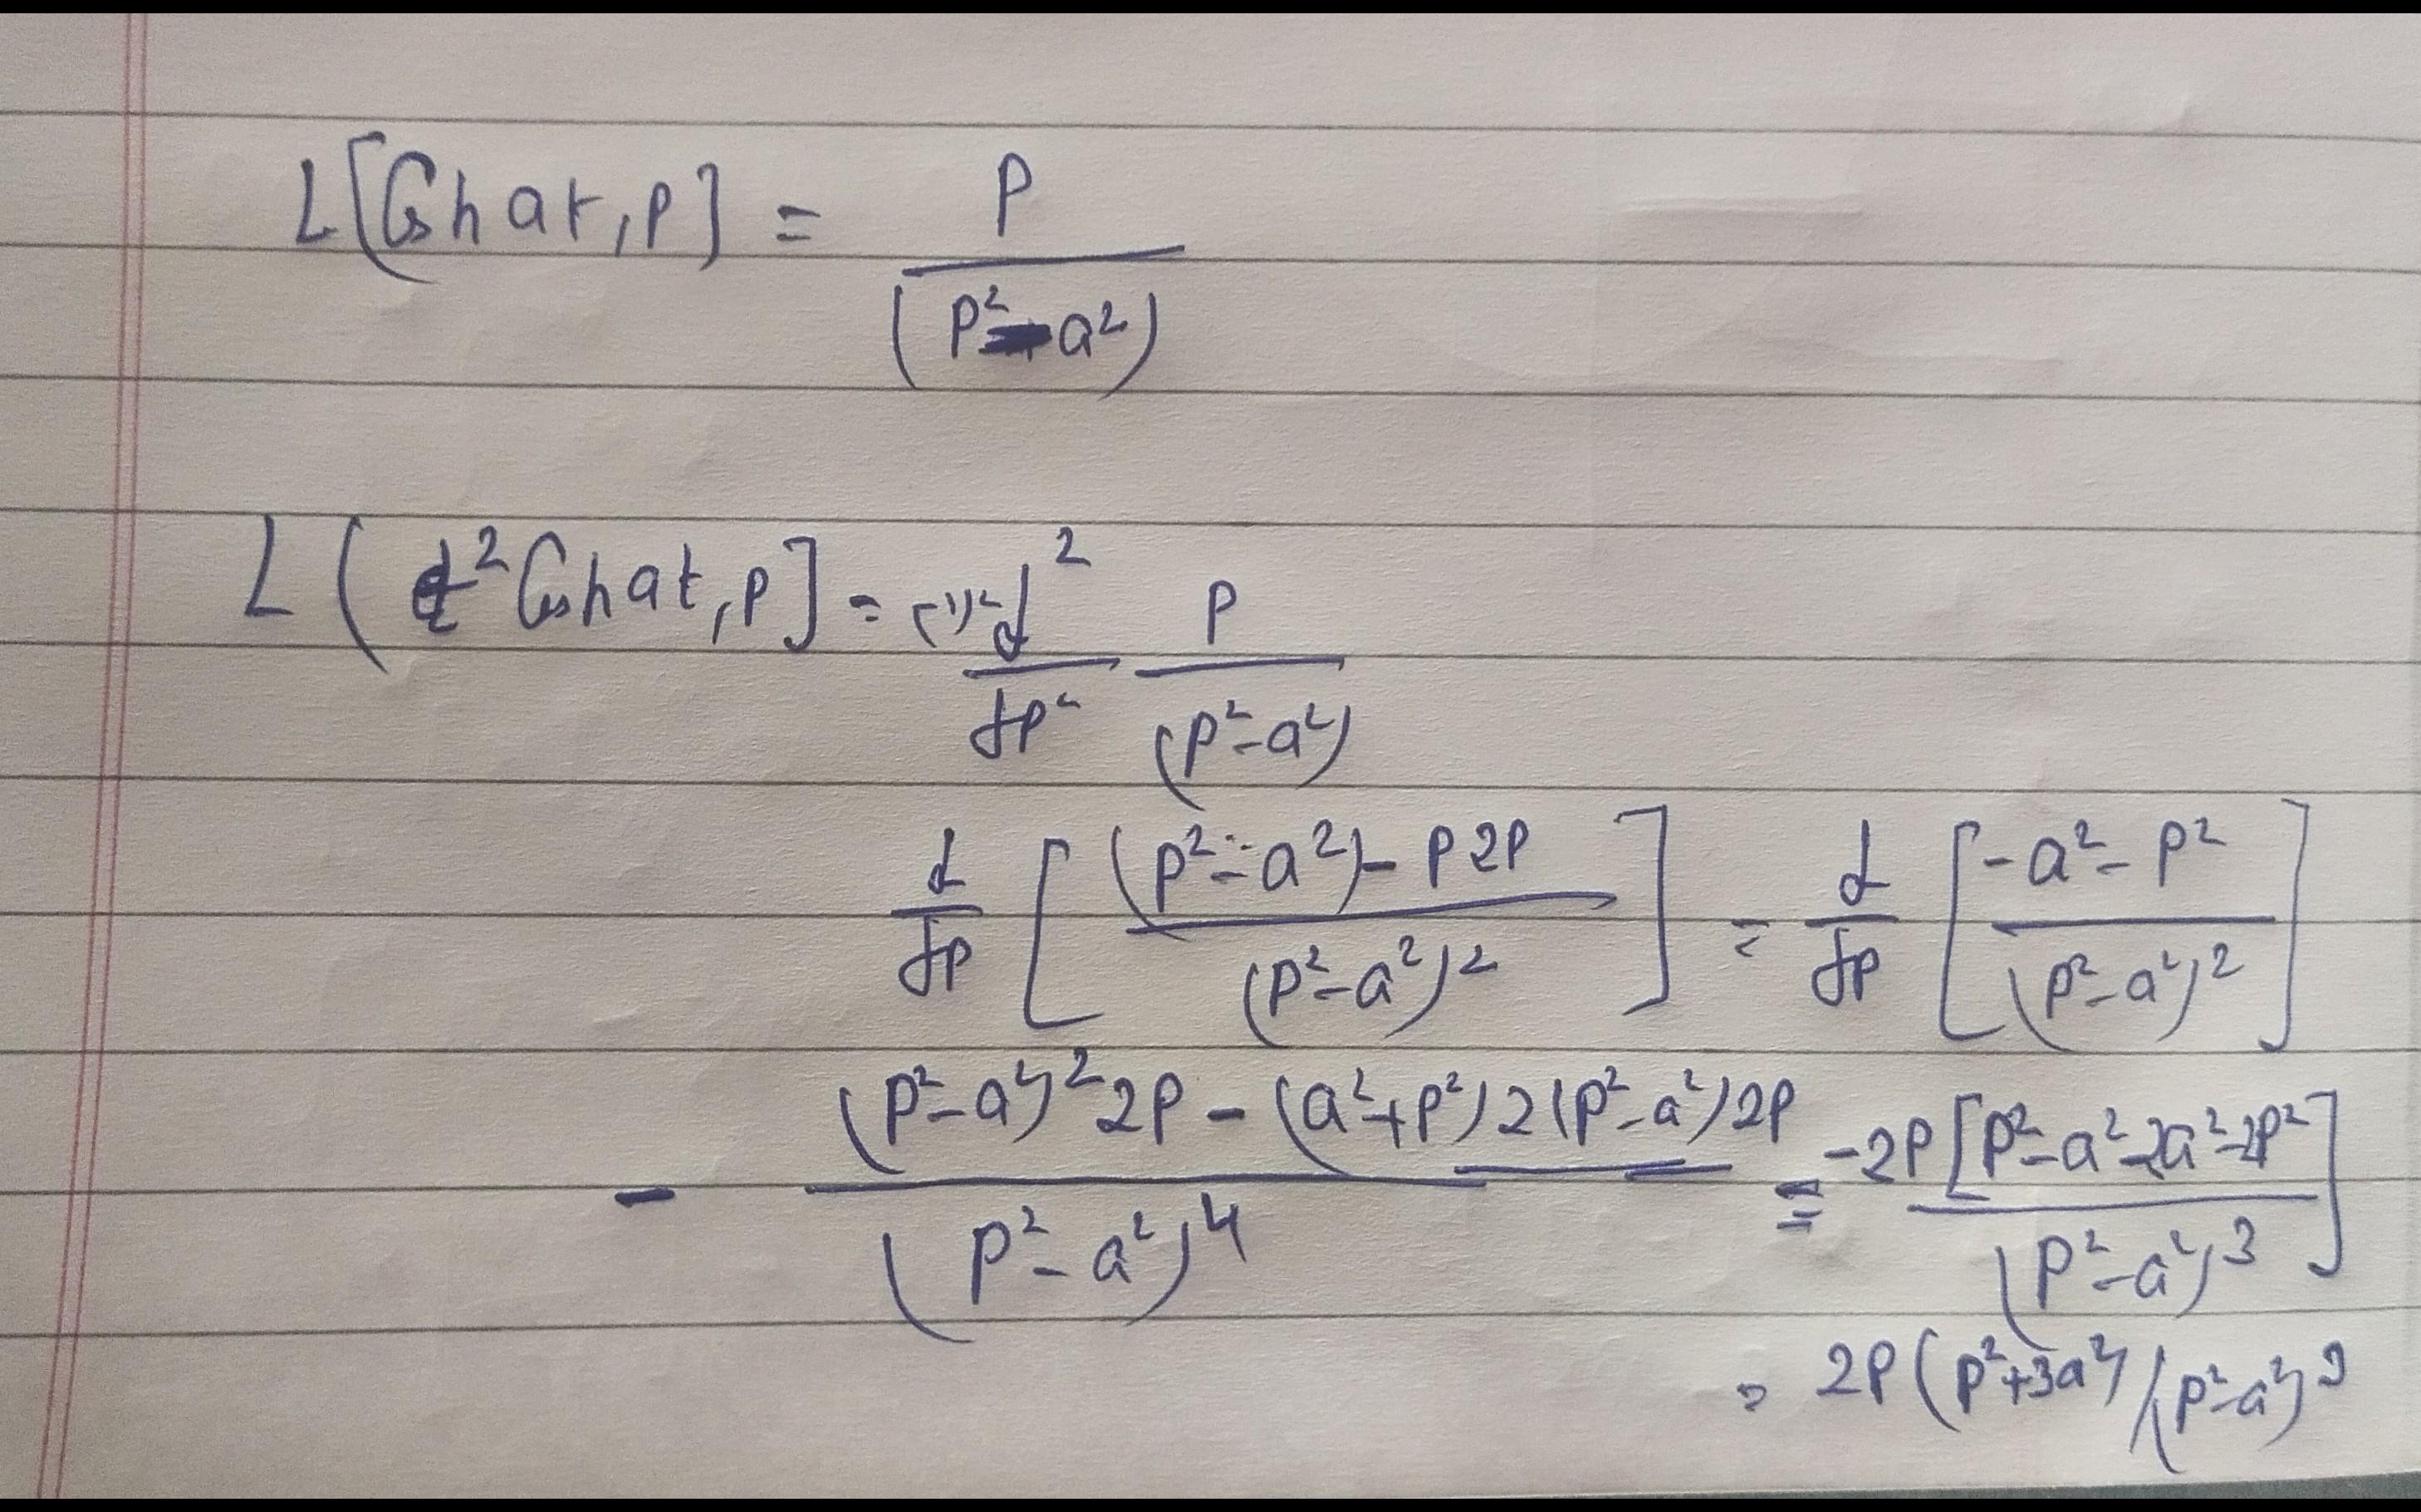 L[Coshat,p] = P/(P²-a²)
L(t²Coshat,p] = (-1)² d²/dp² P/(P²-a²)
d/dp [((P²-a²)-P2P)/(P²-a²)²] = d/dp [(-a²-P²)/(P²-a²)²]
- ((P²-a²)²2P-(a²+P²)2(P²-a²)2P)/(P²-a²)⁴ = -2P[P²-a²-2a²-2P²]/(P²-a²)³
= 2P(P²+3a²)/(P²-a²)³